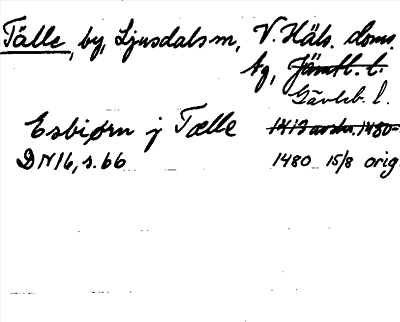 Tälle, by, Ljusdals sn, V. Häls. doms.
tg, Jämtl. l.
Gävleb. l.
Esbiørn j Tælle 1413 avskr. 1480
DN 16, s. 66 1480 15/8 orig.